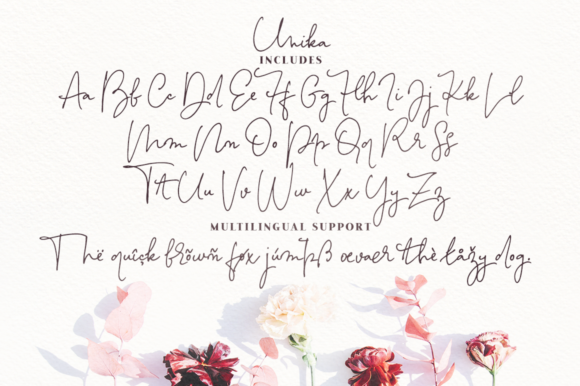 Unika
INCLUDES
Aa Bb Cc Dd Ee Ff Gg Hh Ii Jj Kk Ll
Mm Nn Oo Pp Qq Rr Ss
Tt Uu Vv Ww Xx Yy Zz
MULTILINGUAL SUPPORT
Thë quîçk brõwñ føx júmpß œvær thè låžy dog.